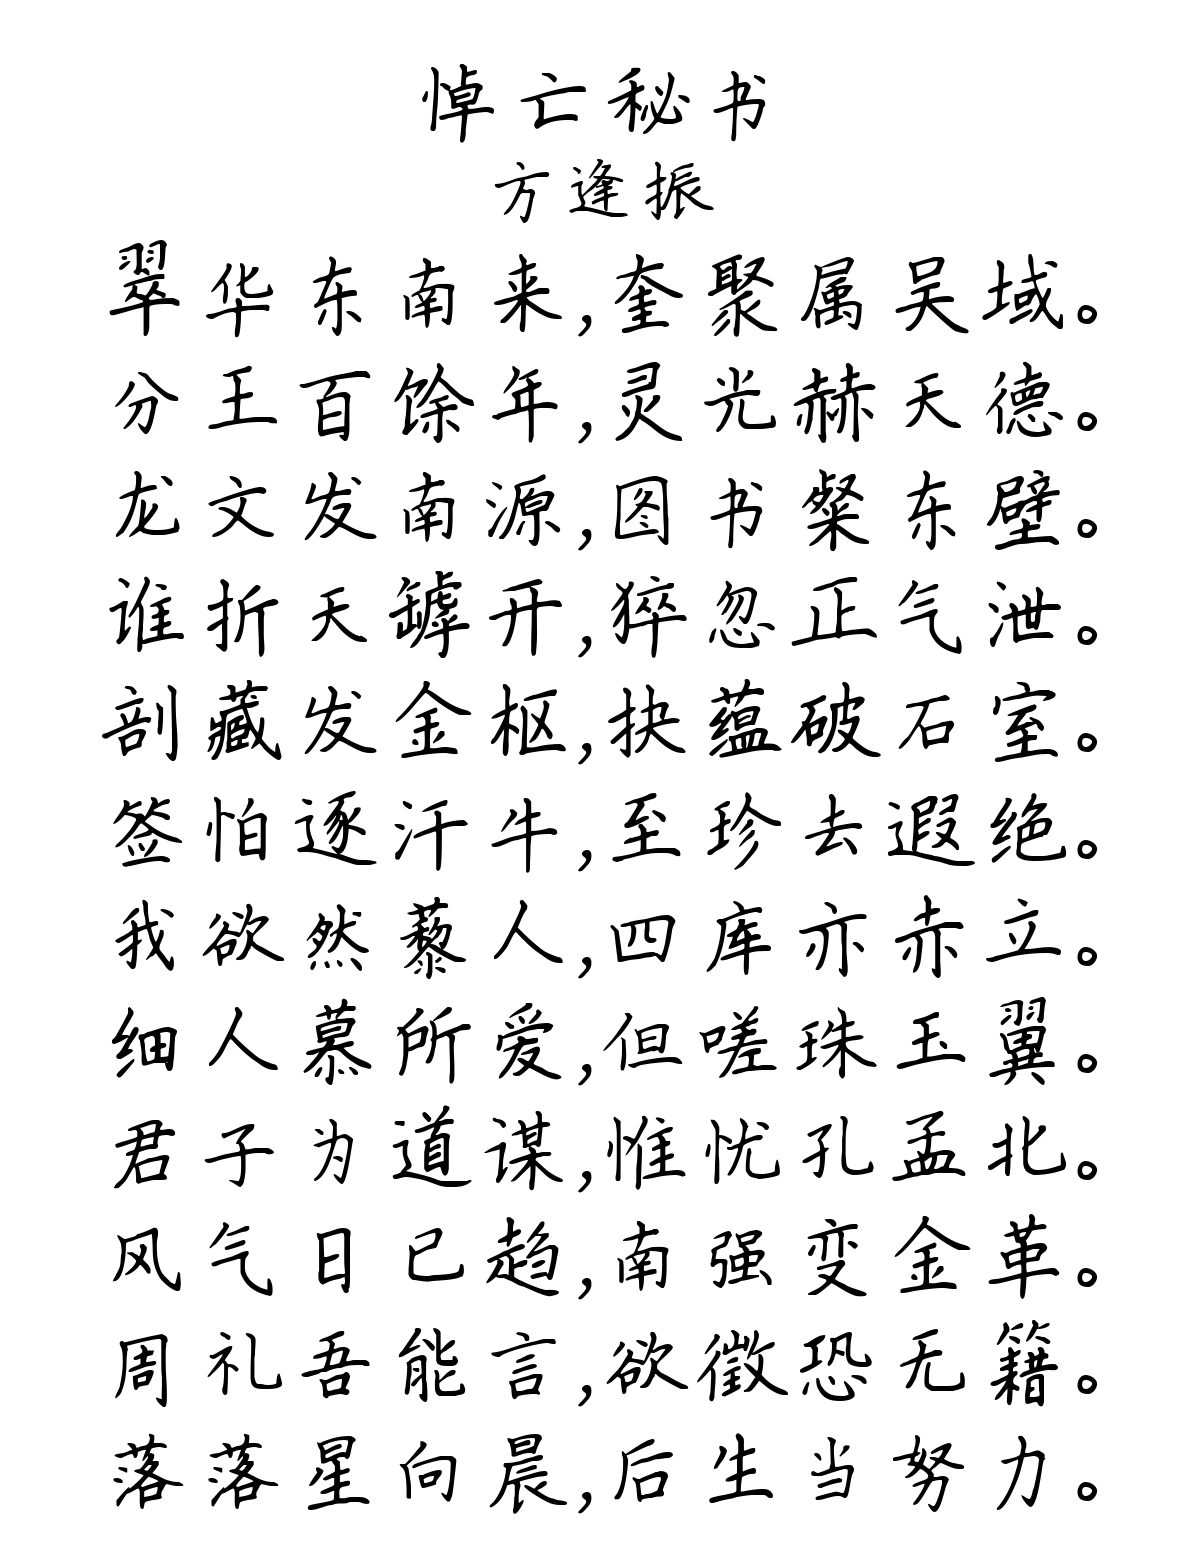 悼亡秘书
方逢振
翠华东南来,奎聚属吴域。
分王百馀年,灵光赫天德。
龙文发南源,图书粲东壁。
谁折天罅开,猝忽正气泄。
剖藏发金枢,抉蕴破石室。
签怕逐汗牛,至珍去遐绝。
我欲然藜人,四库亦赤立。
细人慕所爱,但嗟珠玉翼。
君子为道谋,惟忧孔孟北。
风气日已趋,南强变金革。
周礼吾能言,欲徵恐无籍。
落落星向晨,后生当努力。